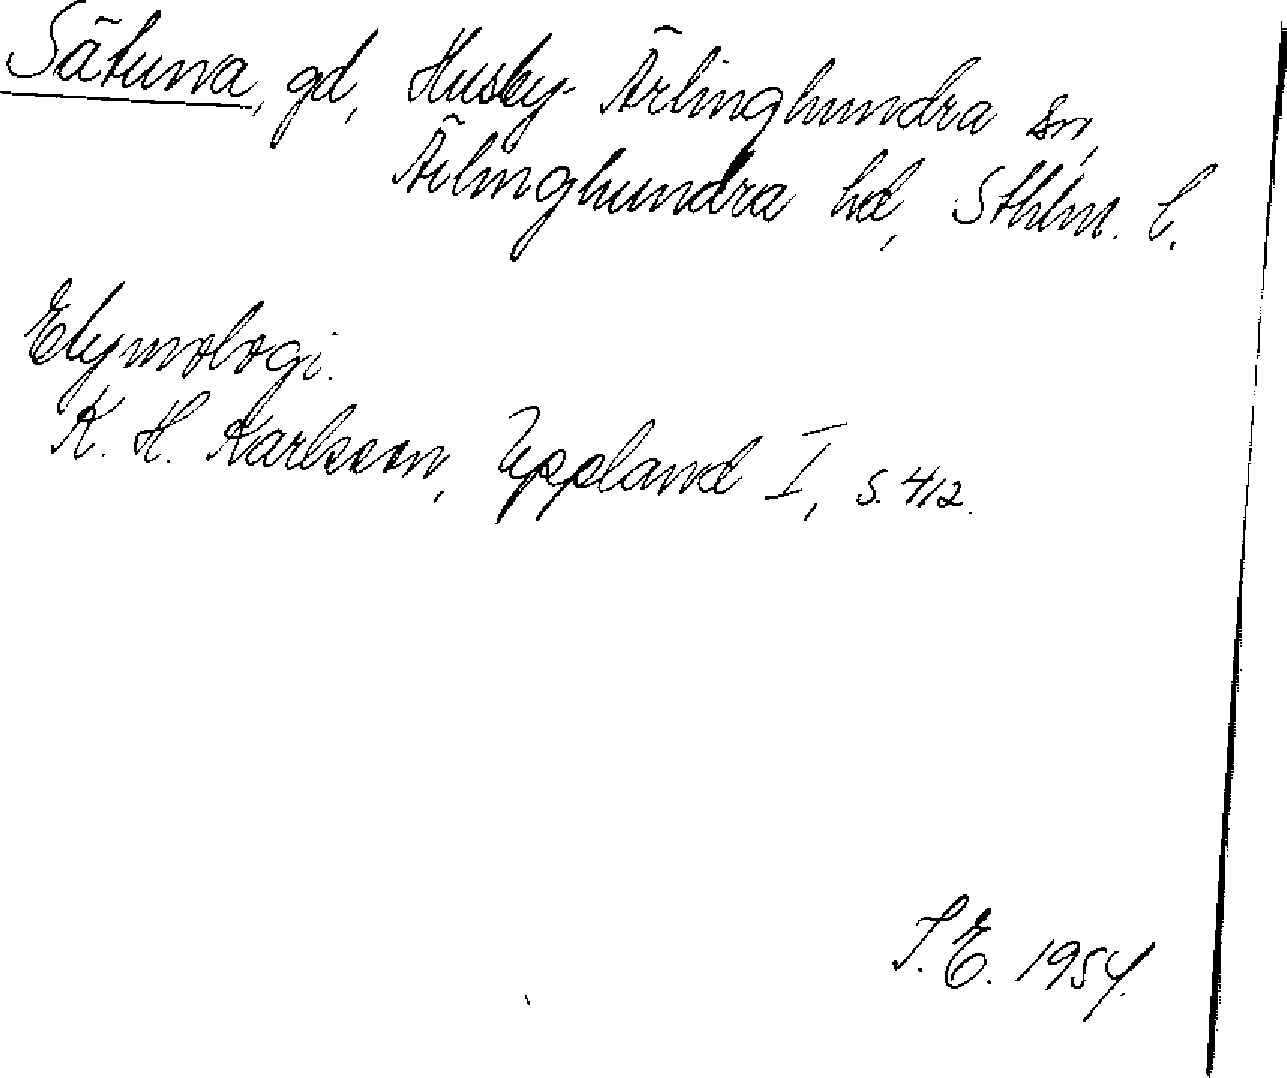 Sätuna, gd, Husby-Ärlinghundra sn,
Ärlinghundra hd, Sthlm. l.
Etymologi.
K. H. Karlsson, Uppland I, s. 412.
I. E. 1954.